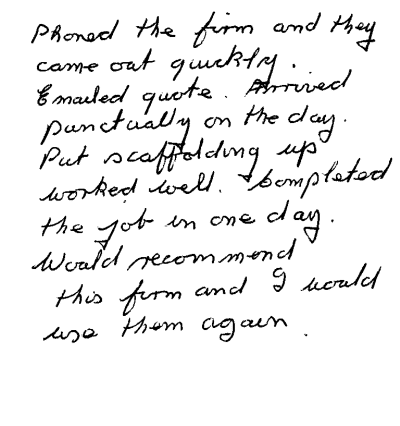 Phoned the firm and they
came out quickly.
Emailed quote. Arrived
punctually on the day.
Put scaffolding up
worked well. Completed
the job in one day.
Would recommend
this firm and I would
use them again.